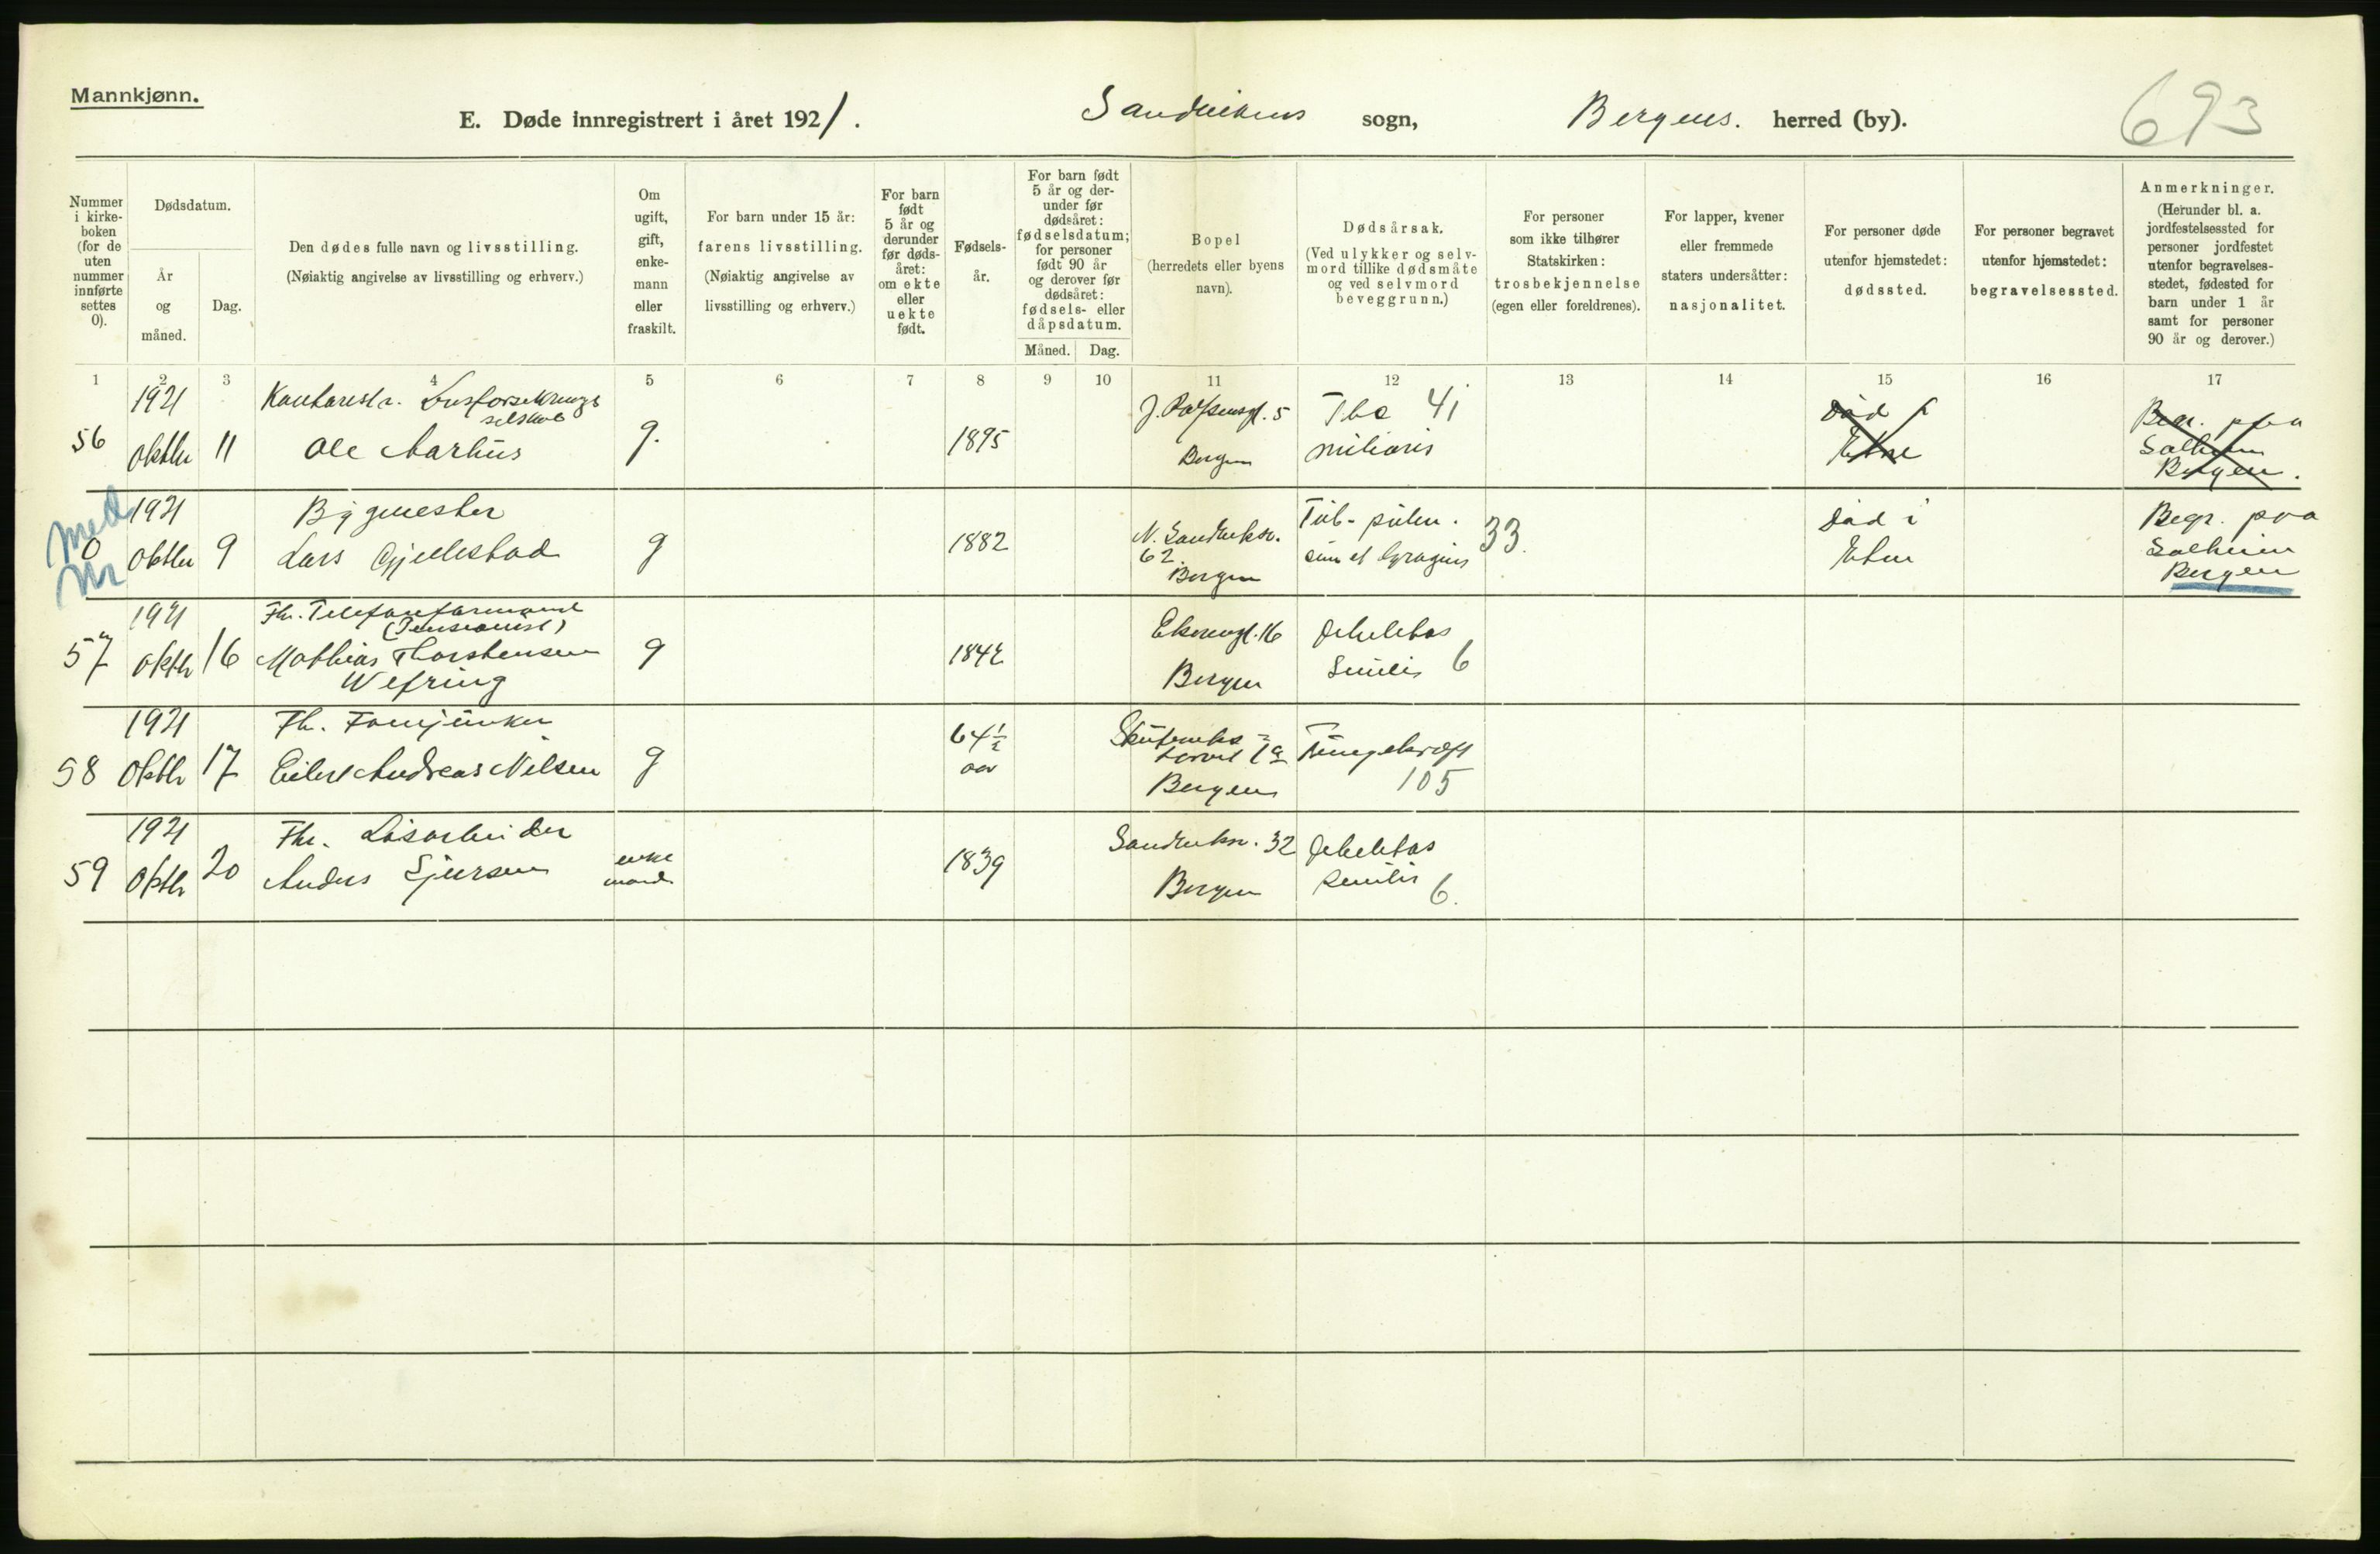 Mannkjønn.
E. Døde innregistrert i året 1921. Sandvikens sogn, Bergens. herred (by).
693
Nummer i kirke-boken (for de uten nummer innførte settes 0).
Dødsdatum.
År og måned.
Dag.
Den dødes fulle navn og livsstilling.
(Nøiaktig angivelse av livsstilling og erhverv.)
Om ugift, gift, enke-mann eller fraskilt.
For barn under 15 år:
farens livsstilling.
(Nøiaktig angivelse av livsstilling og erhverv.)
For barn født 5 år og derunder før døds-året: om ekte eller uekte født.
Fødsels-år.
For barn født 5 år og der-under før dødsåret: fødselsdatum; for personer født 90 år og derover før dødsåret: fødsels- eller dåpsdatum.
Måned.
Dag.
Bopel
(herredets eller byens navn).
Dødsårsak.
(Ved ulykker og selv-mord tillike dødsmåte og ved selvmord beveggrunn.)
For personer som ikke tilhører Statskirken:
trosbekjennelse
(egen eller foreldrenes).
For lapper, kvener eller fremmede staters undersåtter:
nasjonalitet.
For personer døde utenfor hjemstedet:
dødssted.
For personer begravet utenfor hjemstedet:
begravelsessted.
Anmerkninger.
(Herunder bl. a. jordfestelsessted for personer jordfestet utenfor begravelses-stedet, fødested for barn under 1 år samt for personer 90 år og derover.)
1 2 3 4 5 6 7 8 9 10 11 12 13 14 15 16 17
56 1921 oktbr 11
Ole Aarhus
g.
1895
5 Bergen
Tbc 41
miliaris
Død i
Etne
Begr. paa
Solheim
Bergen.
med
Nr
0 1921 Oktbr 9
Bygmester
Lars Gjellestad
g
1882
N. Sandviksv.
62.
Bergen
Tub- pulm.
sum et laryngis 33.
Død i
Etne
Begr. paa
Solheim
Bergen
57 1921 oktbr 16
Fhv. Telefonformand
(Pensionist)
Mathias Thorstensen
Wefring
g
1842
16
Bergen
debilitas
Senilis 6
58 1921 Oktbr 17
Fh. Fourjunker
Eilert Andreas Nilsen
g
64 1/2
aar
Skuteviks
torvet
Bergen
105
59 1921 Oktbr 20
Fhv. Løsarbeider
Anders Sjursen
enke
mand.
1839
Sandviksv. 32
Bergen
debilitas
senilis 6.